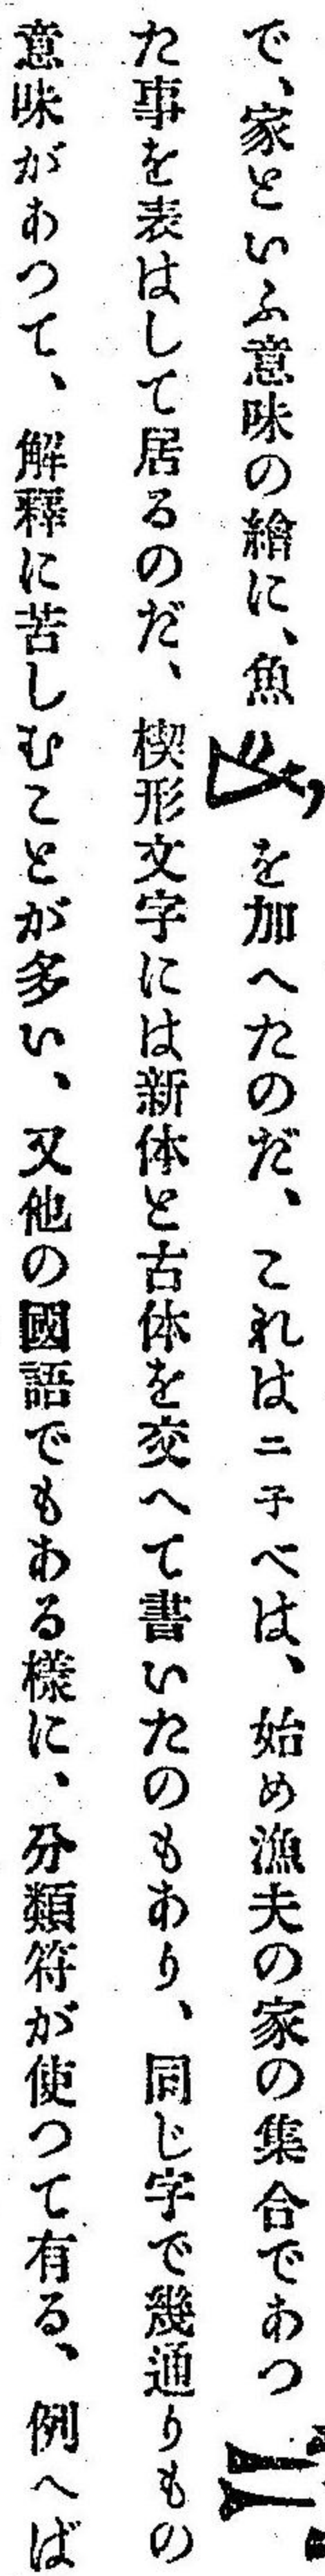 で、家といふ意味の繪に、魚を加へたのだ、これはニ子ベは、始め漁夫の家の集合であつ
た事を表はして居るのだ、楔形文字には新体と古体を交へて書いたのもあり、同じ字で幾通りもの
意味があつて、解釋に苦しむことが多い、又他の國語でもある様に、分類符が使つて有る、例へば